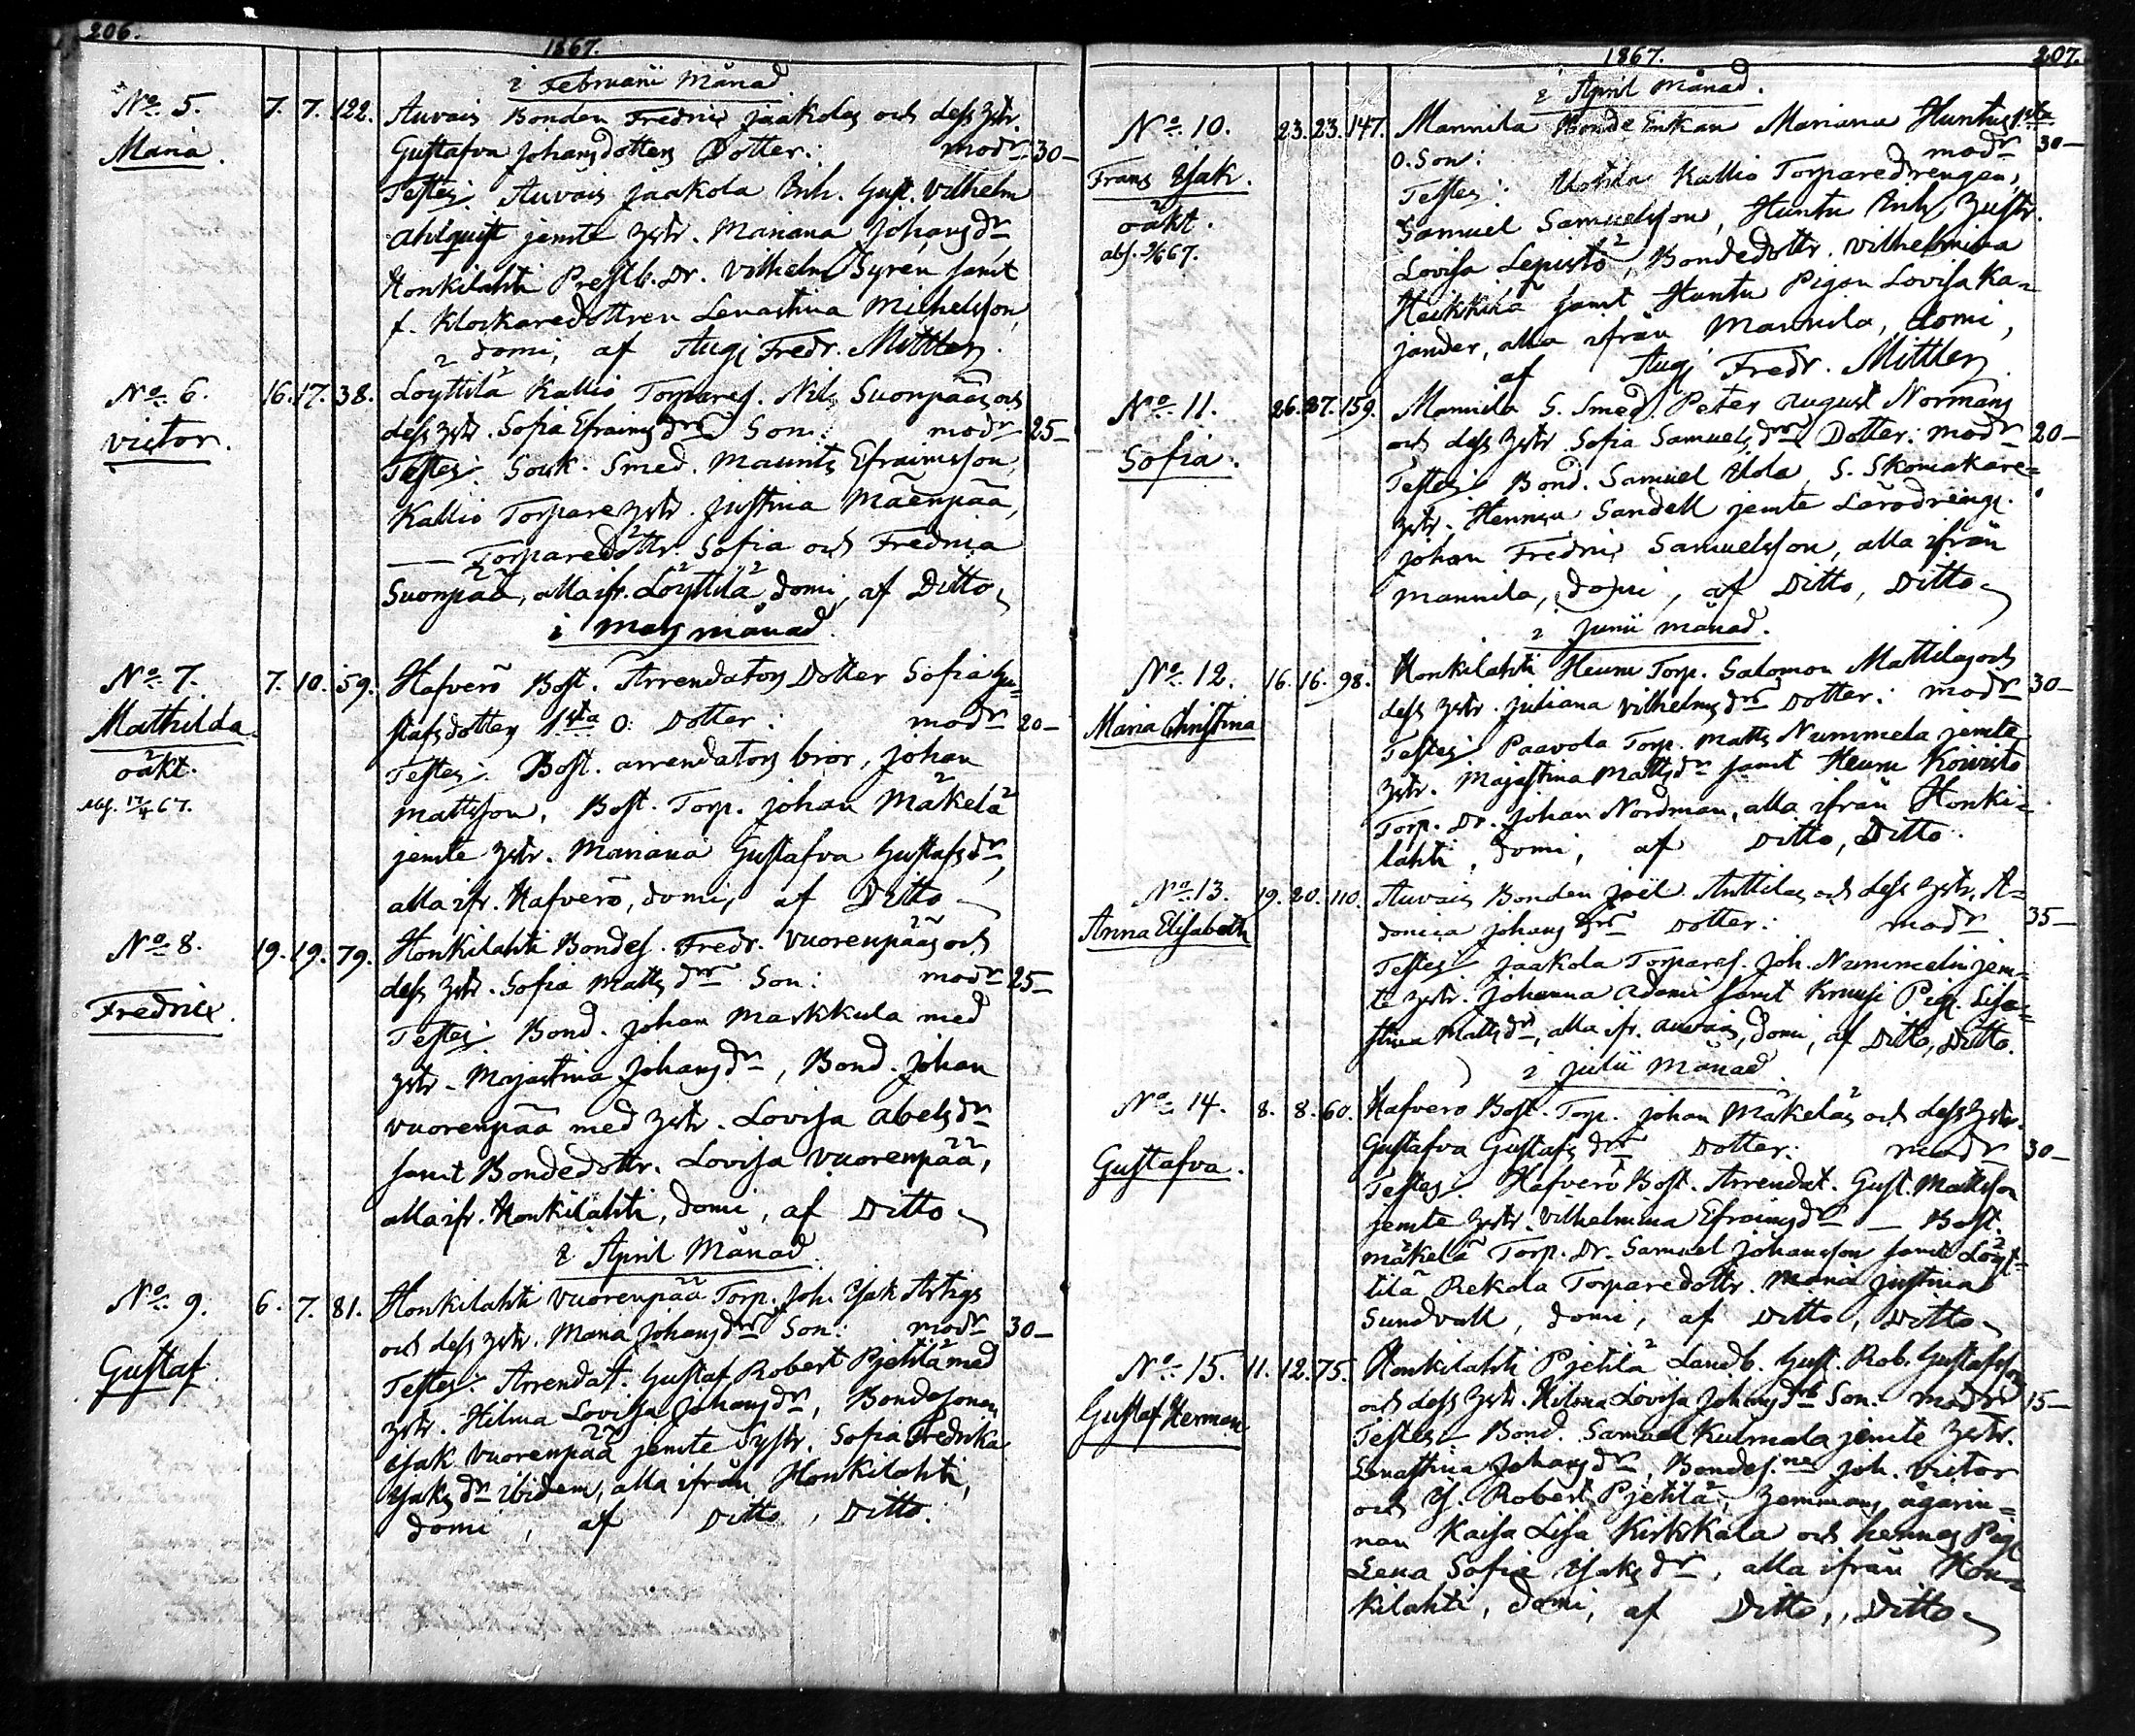 206.
1867.
i Februarii Månad
No 5. 7. 7. 122. Auvais Bonden Fredric Jaakolas och dess hstr.
Maria. Gustafva Johansdotters Dotter: modr 30—
Testes: Auvais Jaakola Inh. Gust. Vilhelm
Ahlquist jemte hstr. Mariana Johansdr,
Honkilahti Prestb. Dr. Vilhelm Syren samt
f. Klockaredottren Lenastina Michelsson,
domi, af Aug. Fredr. Mittler.
No 6. 16. 17. 38. Löyttilä Kallio Torpares. Nils Suonpääs och
Victor. dess hstr. Sofia Efraimsdrs Son: modr 25—
Testes: Sock. Smed. Maurits Efraimsson,
Kallio Torpare hstr. Justina Mäenpää,
—— Torparedottr. Sofia och Fredrica
Suonpää, alla ifr. Löyttilä domi, af Ditto
i Mars månad.
No 7. 7. 10. 59. Hafverö Bost. Arrendators Dotter Sofia Gu=
Mathilda. stafsdotters 1sta O: Dotter: modr 20—
oäkt. Testes: Bost. arrendators bror, Johan
abs. 67. Mattsson, Bost. Torp. Johan Mäkelä
jemte hstr. Mariana Gustafva Gustafsdr,
alla ifr. Hafverö, domi, af Ditto
No 8. 19. 19. 79. Honkilahti Bondes. Fredr. Vuorenpääs och
Fredric. dess hstr. Sofia Mattsdrs Son: modr 25—
Testes: Bond. Johan Markkula med
hstr. Majastina Johansdr, Bond. Johan
Vuorenpää med hstr. Lovisa Abelsdr
samt Bondedottr. Lovisa Vuorenpää,
alla ifr. Honkilahti, domi, af Ditto
i April Månad
No 9. 6. 7. 81. Honkilahti Vuorenpää Torp. Joh. Isak Artigs
Gustaf och dess hstr. Maria Johansdrs Son: modr 30—
Testes: Arrendat. Gustaf Robert Pjetilä med
hstr. Hilma Lovisa Johansdr, Bondesonen
Isak Vuorenpää jemte Systr. Sofia Fredrika
Isaksdr ibidem, alla ifrån Honkilahti,
domi, af Ditto, Ditto.
1867. 207.
i April Månad.
No 10. 23. 23. 147. Mannila Bonde Enkan Mariana Huntus 1sta
Frans Isak. O. Son: modr 30—
oäkt. Testes: Kallio Torparedrengen,
abs. 67. Samuel Samuelsson, Huntu Inh. hustr.
Lovisa Lepistö, Bondedottr. Vilhelmina
Heikkilä samt Huntu Pigan Lovisa Ka=
jander, alla ifrån Mannila, domi,
af Aug. Fredr. Mittler
No 11. 26. 27. 159. Mannila S. Smed. Peter August Normans
Sofia. och dess hstr. Sofia Samuelsdrs Dotter: modr 20—
Testes: Bond. Samuel Uola, S. Skomakare=
hstr. Henrica Sandell jemte Lärodreng.
Johan Fredric Samuelsson, alla ifrån
Mannila, domi, af Ditto, Ditto
i Junii månad.
No 12. 16. 16. 98. Honkilahti Heuru Torp. Salomon Mattilas och
Maria Christina dess hstr. Juliana Vilhelmsdrs Dotter: modr 30—
Testes: Paavola Torp. Matts Nummela jemte
hstr. Majastina Mattsdr samt Heuru Koivisto
Torp. Dr. Johan Nordman, alla ifrån Honki=
lahti, domi, af Ditto, Ditto.
No 13. 19. 20. 110. Auvais Bonden Joël Anttilas och dess hstr. A=
Anna Elisabeth domica Johansdrs Dotter: modr 35—
Testes: Jaakola Torpares. Joh. Nummelin jem=
te hstr. Johanna Adami samt Kruusi Pig. Lisa=
stina Mattsdr, alla ifr. Auvais, domi, af Ditto, Ditto.
i Julii Månad
No 14. 8. 8. 60. Hafverö Bost. Torp. Johan Mäkeläs och dess hstr.
Gustafva. Gustafva Gustafsdrs Dotter: modr 30—
Testes: Hafverö Bost. Arrendat. Gust. Mattsson
jemte hstr. Vilhelmina Efraimsdr — Bost.
Mäkelä Torp. Dr. Samuel Johansson samt Löyt=
tilä Rekola Torparedottr. Maria Justina
Sundvall, domi, af Ditto, Ditto
No 15. 11. 12. 75. Honkilahti Pjetilä Landb. Gust. Rob. Gustafssons
Gustaf Herman och dess hstr. Hilma Lovisa Johansdrs Son: modr 15—
Testes: Bond. Samuel Kulmala jemte hstr.
Lenastina Johansdr, Bondes.ne Joh. Victor
och Is. Robert Pjetilä, Hemmans ägarin=
nan Kaisa Lisa Kirkkala och hennes Pig.
Lena Sofia Isaksdr, alla ifrån Hon=
kilahti, domi, af Ditto, Ditto